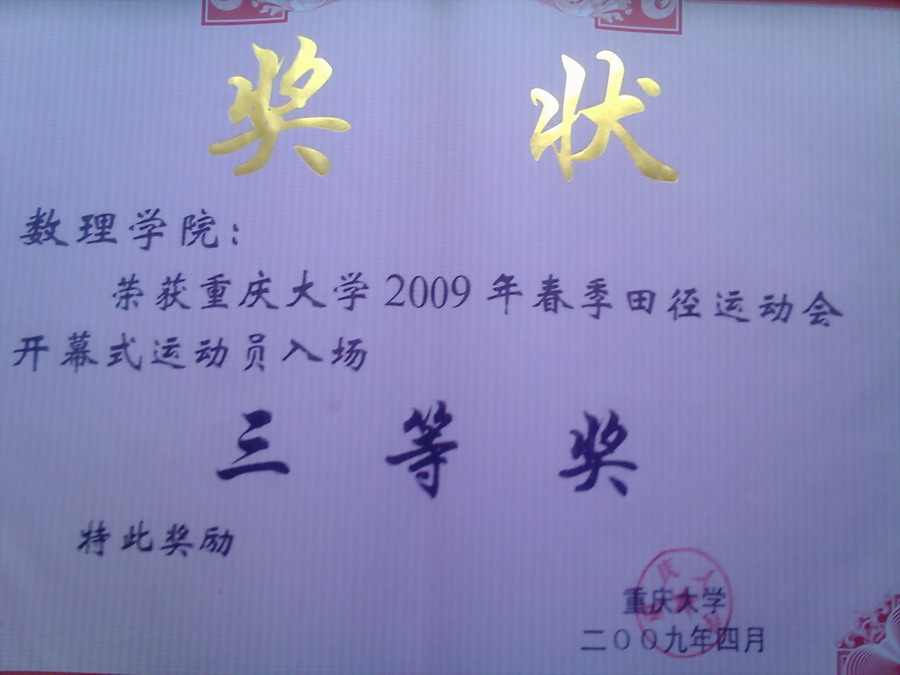 奖状
数理学院：
荣获重庆大学2009年春季田径运动会
开幕式运动员入场
三等奖
特此奖励
重庆大学
二〇〇九年四月